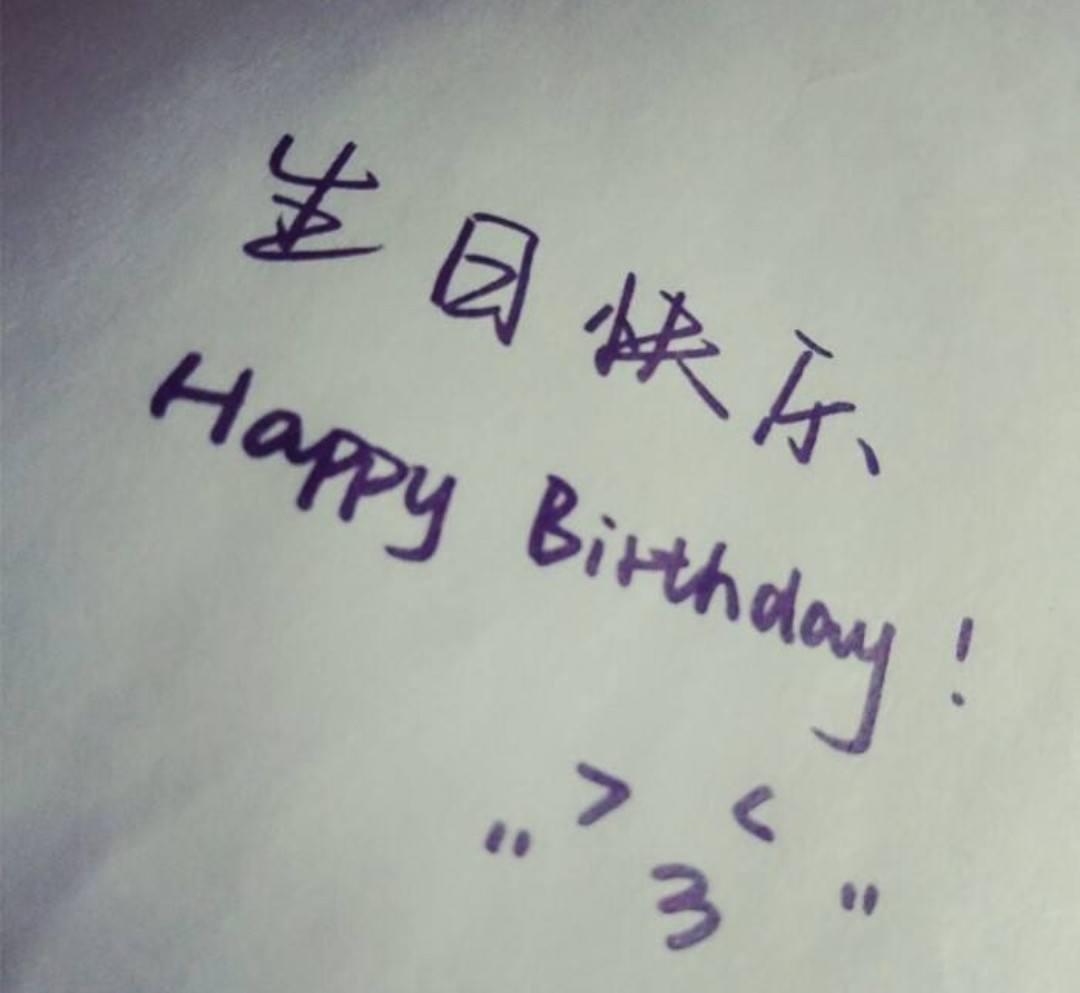 生日快乐
Happy Birthday!
" > 3 < "